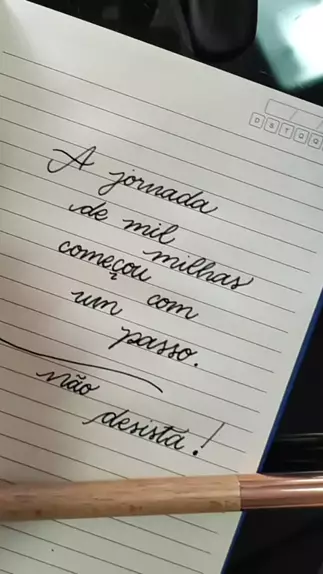 D S T Q Q
A jornada
de mil milhas
começou com
um passo.
não
desista!